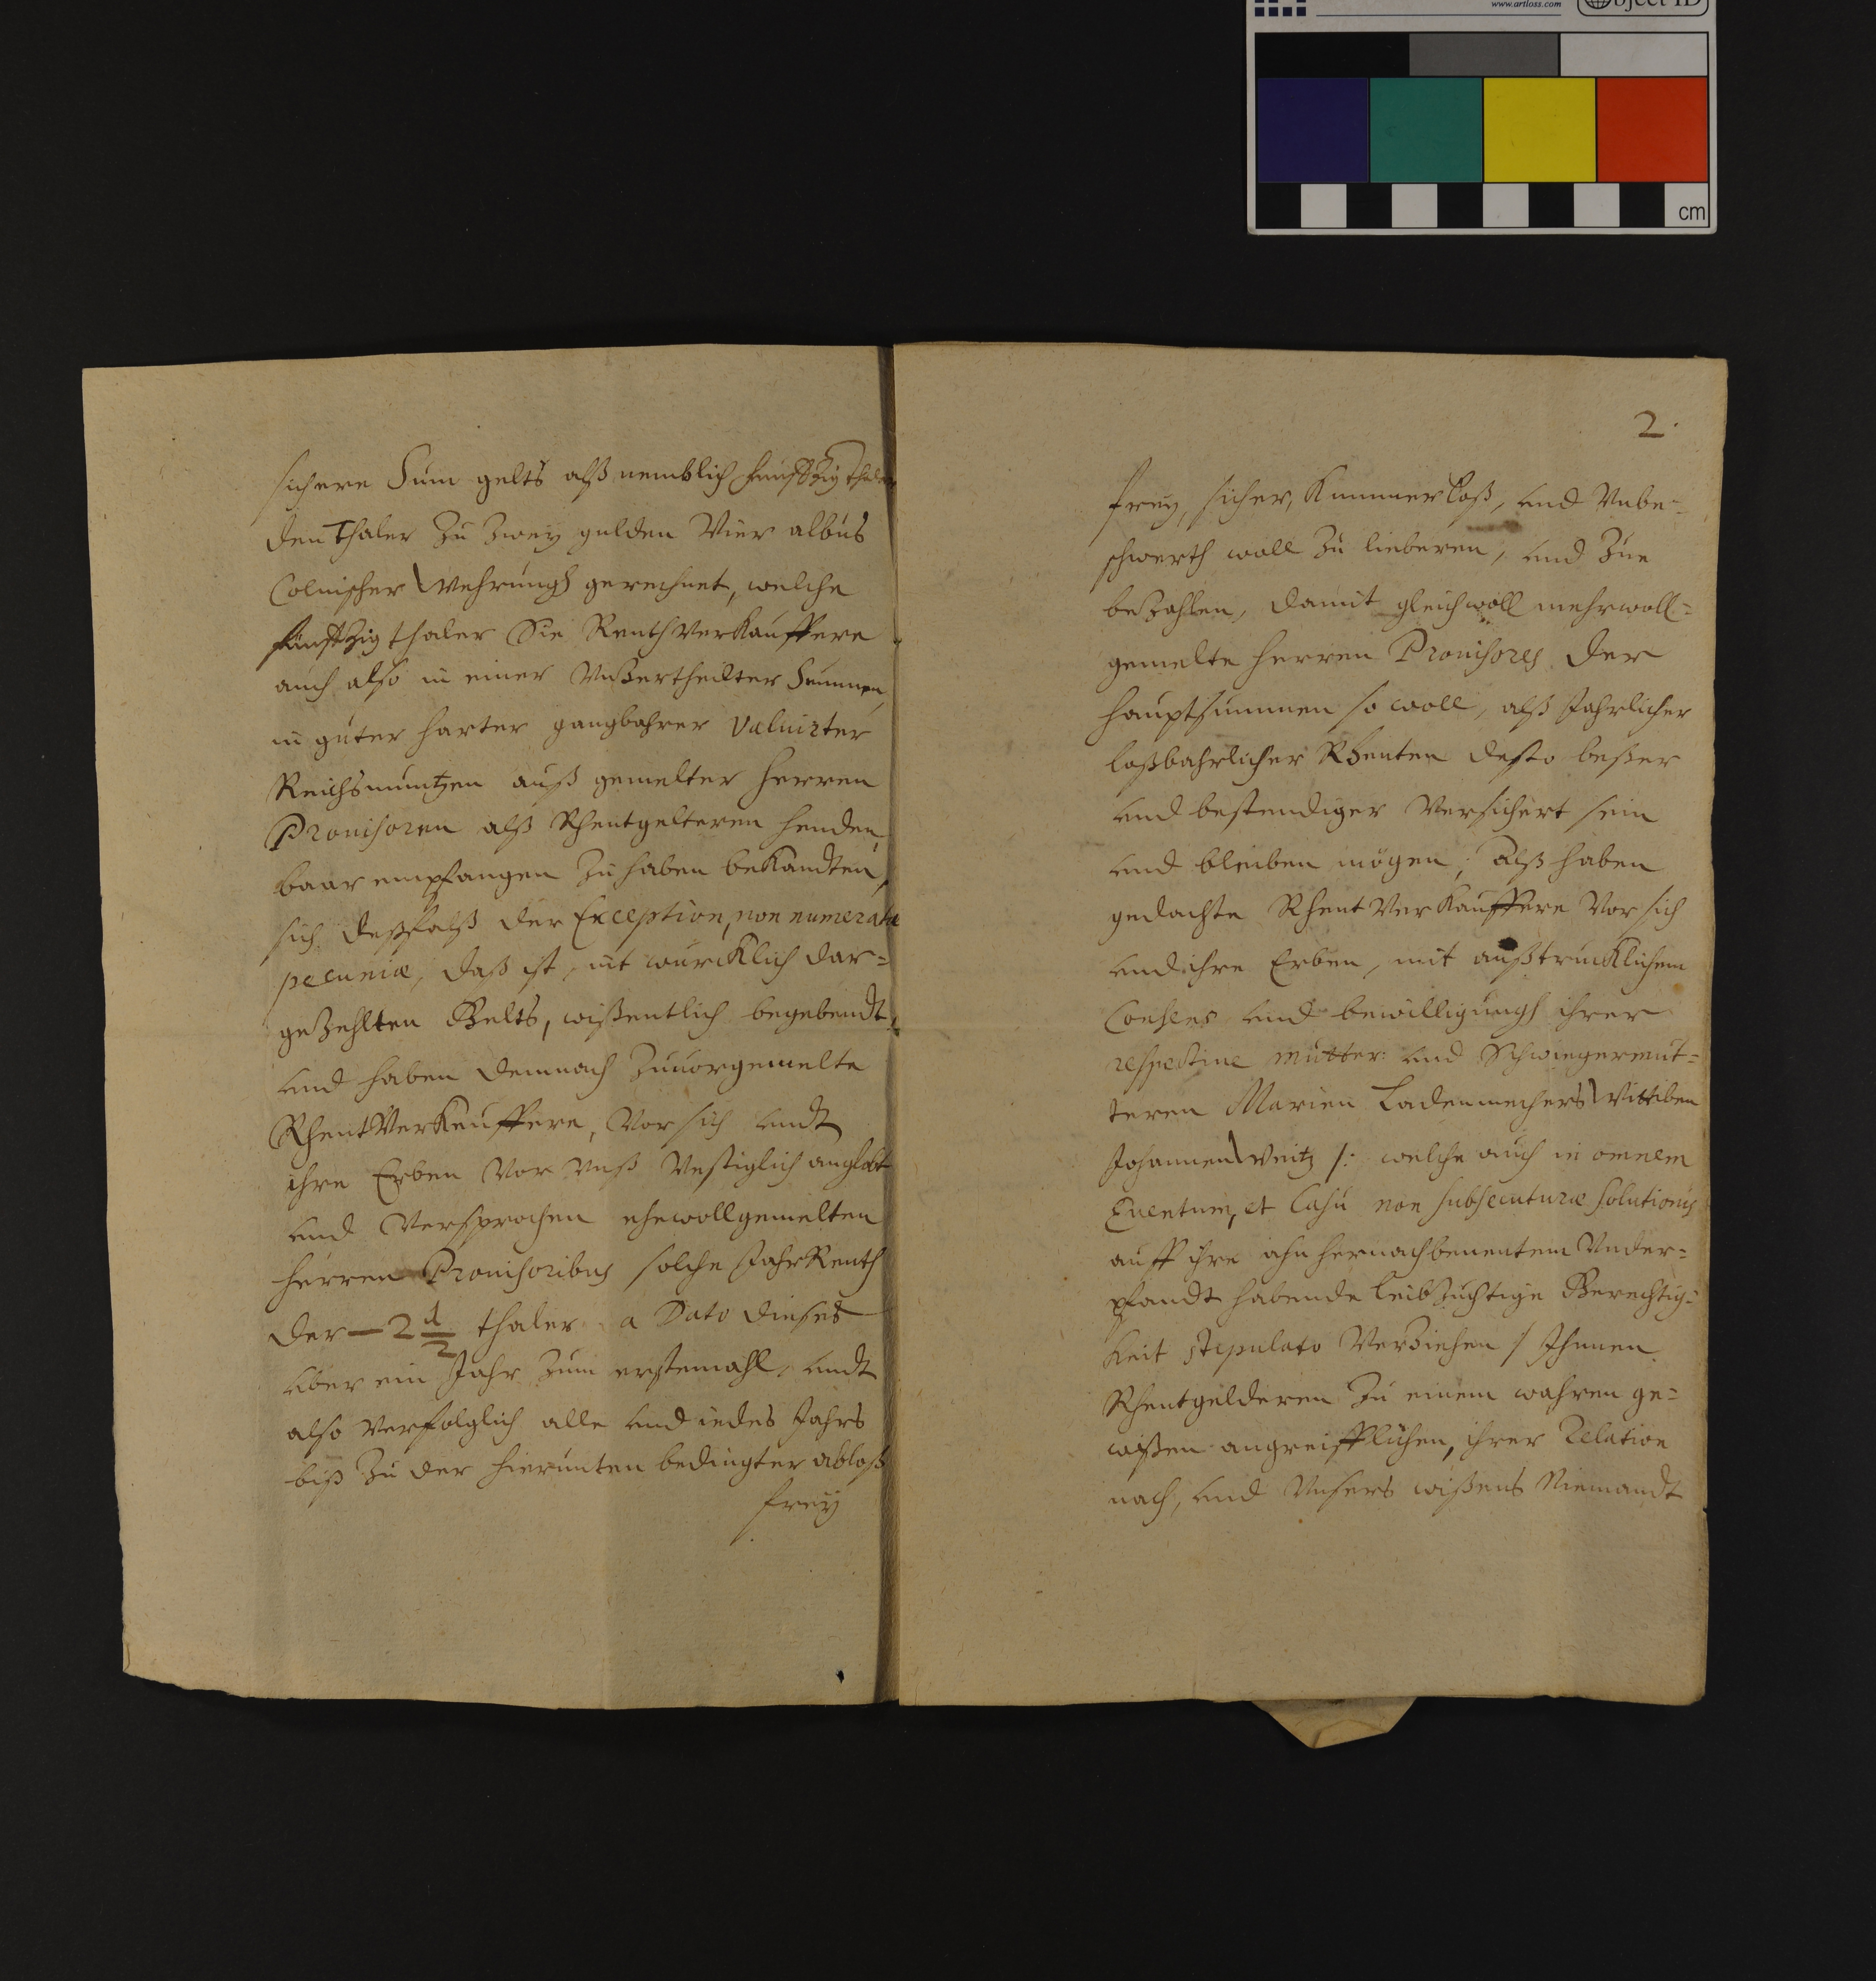 www.artloss.com
Object ID
cm
sichere Sum gelts alß nemblich funfftzig thaler
den thaler zu zwey gulden Vier albus
Colnischer Wehrungh gerechnet, welche
funfftzig thaler Sie Renth Verkauffere
auch also in einer Unzertheilter Summen,
in guter harter gangbahrer Valuirter
Reichsmuntzen auß gemelter herren
Provisoren alß Rhentgelteren henden
baar empfangen zu haben bekandten,
sich deßfalß der Exception, non numeratæ
pecuniæ, daß ist, nit wurcklich dar=
gezehlten Gelts, wißentlich begebendt,
und haben demnach zuvorgemelte
Rhent Verkeuffere, Vor sich undt
ihre Erben Vor Unß Vestiglich anglobt
und Versprochen ehewollgemelten
herren Provisoribus solche Jahr Renth
der — 2 1/2 thaler a Dato dieses
uber ein Jahr zum erstemahl, undt
also Verfolglich alle und iedes Jahrs
biß zu der hierunten bedingter abloß
frey
2.
frey, sicher, Kummerloß, und Unbe=
schwerth woll zu lieberen, und zue
bezahlen, damit gleichwoll mehrwoll=
gemelte herren Provisores der
hauptsummen so woll, alß Jahrlicher
loßbahrlicher Rhenten desto beßer
und bestendiger Versichert sein
und bleiben mögen, Alß haben
gedachte Rhent Verkauffere Vor sich
und ihre Erben, mit außtrucklichem
Consens und bewilligungh ihrer
respective mutter: und Schwiegermut=
teren Marien Ladenmechers Wittiben
Johannen Weitz /: welche auch in omnem
Eventum, et Casu non subsecuturæ solutionis
auff ihre ahn hernachbenentem Under=
pfandt habende leibzuchtige Gerechtig=
keit stipulato Verziehen / Ihnnen
Rhentgelderen zu einem wahren ge=
wißen angreifflichen, ihrer Relation
nach, und Unsers wißens Niemandt